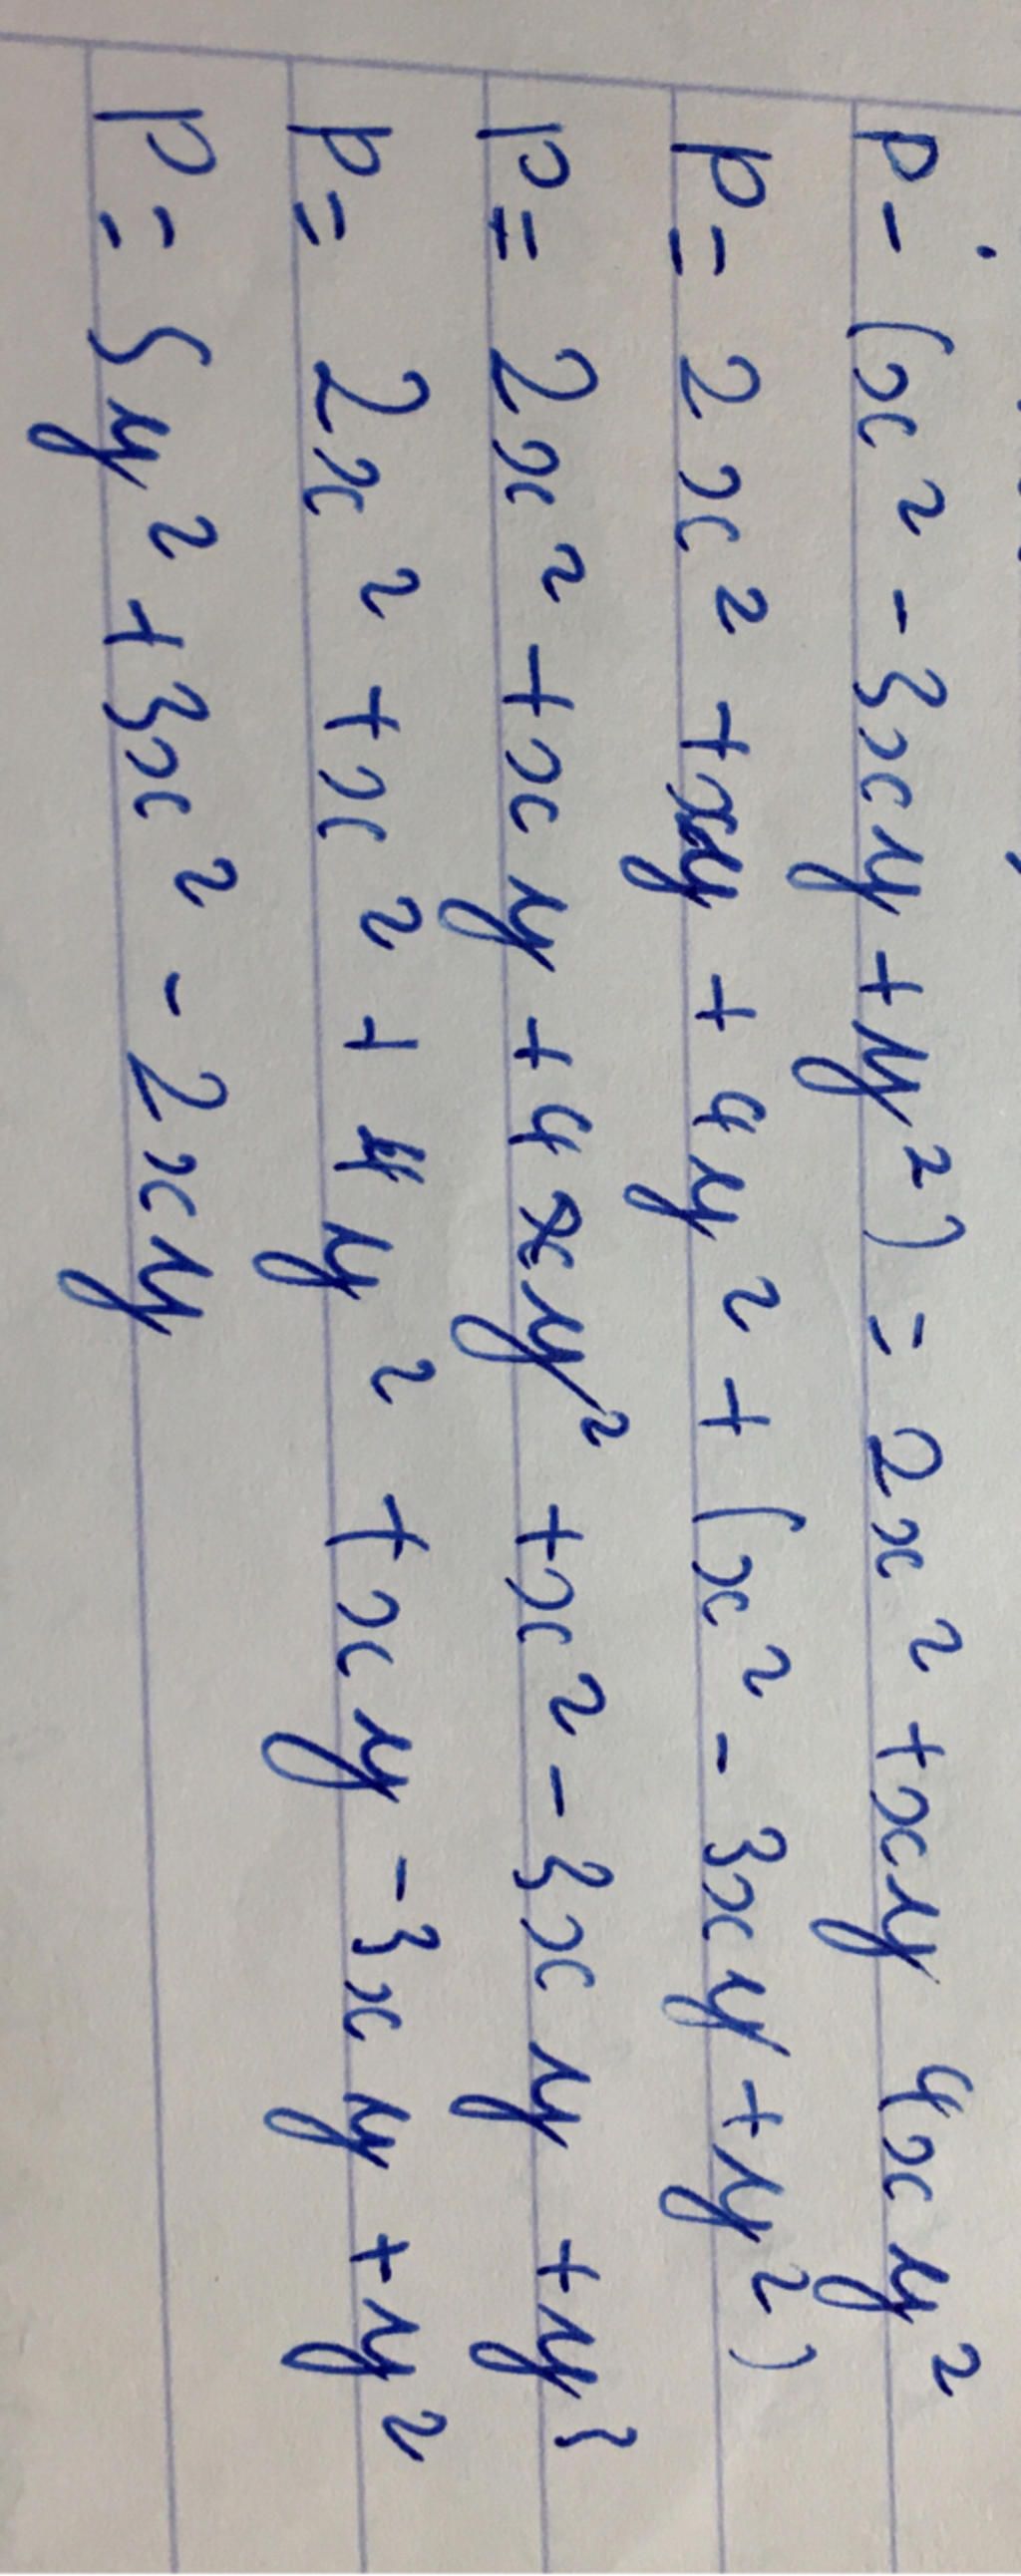 P - (x² - 3xy + y²) = 2x² + xy 4xy²
P = 2x² + xy + 4y² + (x² - 3xy + y²)
P = 2x² + xy + 4xy² + x² - 3xy + y³
P = 2x² + x² + 4y² + xy - 3xy + y²
P = 5y² + 3x² - 2xy